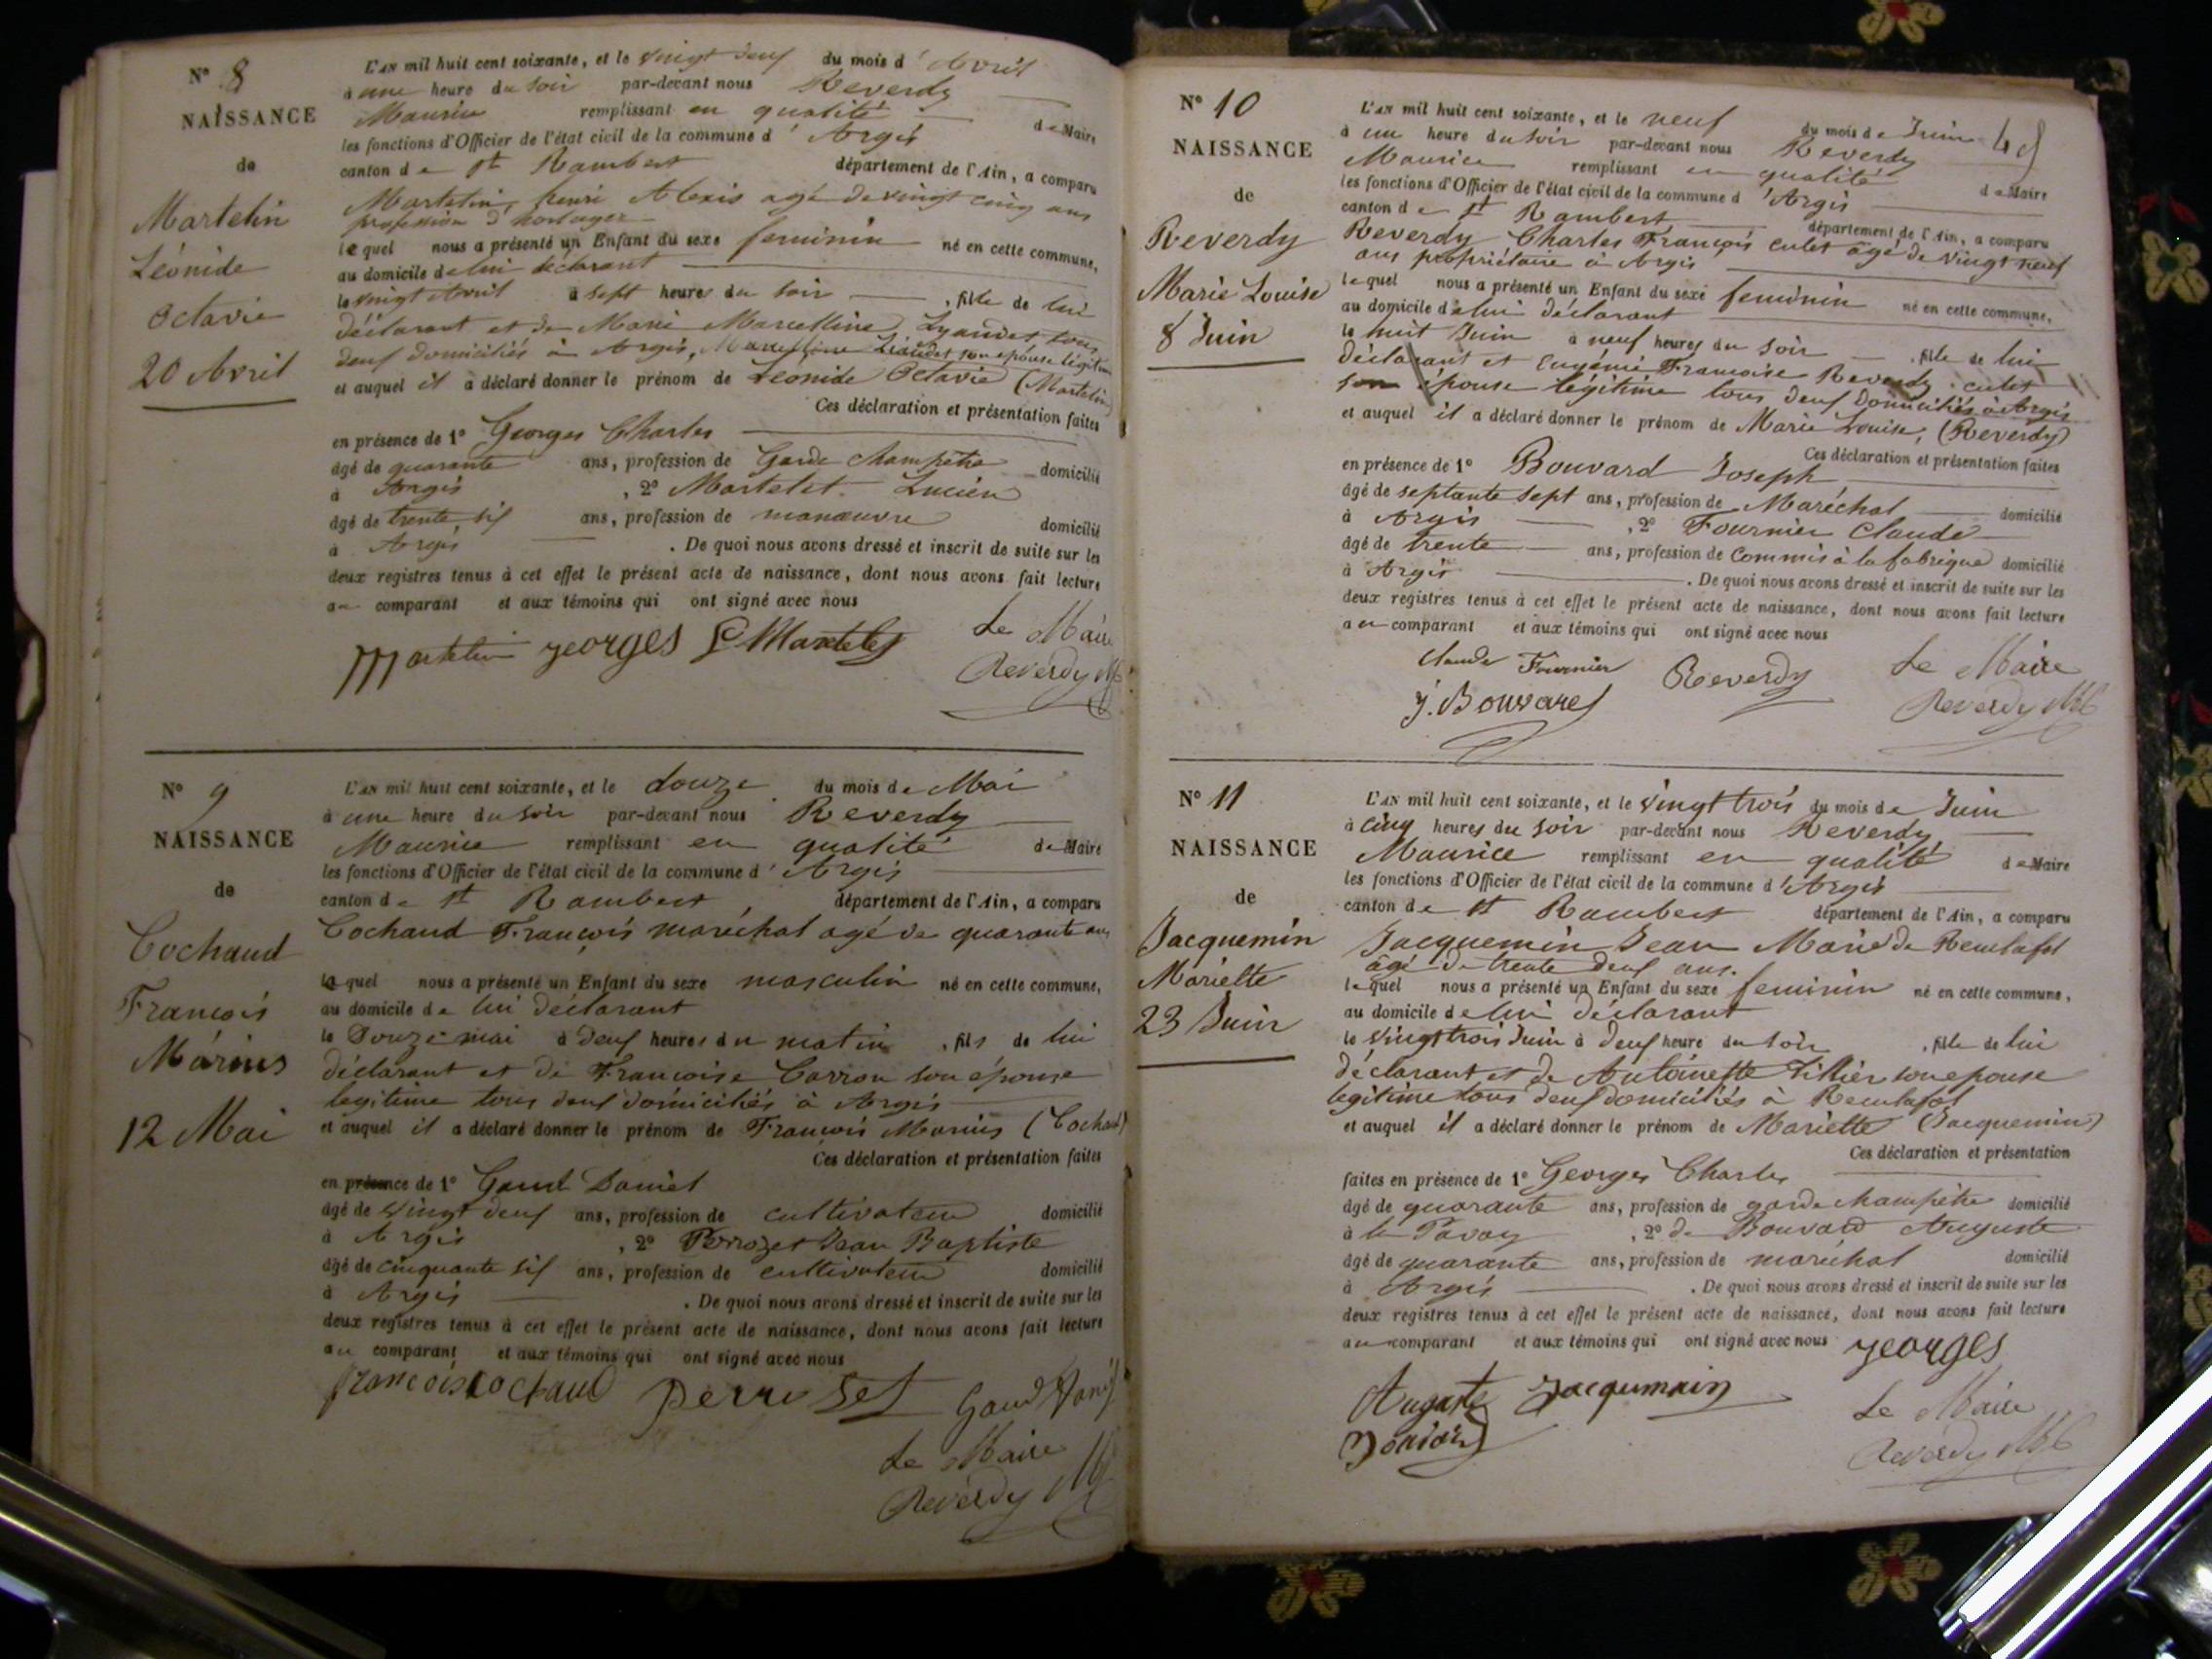 N° 8
NAISSANCE
de
Martelin
Léonide
Octavie
20 Avril
L'AN mil huit cent soixante, et le vingt deux du mois d'Avril
à une heure du soir par-devant nous Reverdy
Maurice remplissant en qualité de Maire
les fonctions d'Officier de l'état civil de la commune d'Argis
canton de St Rambert département de l'Ain, a comparu
Martelin, henri Alexis agé de vingt cinq ans
profession d'horloger
lequel nous a présenté un Enfant du sexe feminin né en cette commune,
au domicile de lui déclarant
le vingt Avril à sept heures du soir, fille de lui
déclarant et de Marie Marcelline Lyaudet tous
deux domiciliés à Argis, Marcelline Liaudet son épouse légitime
et auquel il a déclaré donner le prénom de Léonide Octavie (Martelin)
Ces déclaration et présentation faites
en présence de 1° Georges Charles
âgé de quarante ans, profession de Garde champêtre domicilié
à Argis, 2° Martelet Lucien
âgé de trente six ans, profession de manœuvre domicilié
à Argis. De quoi nous avons dressé et inscrit de suite sur les
deux registres tenus à cet effet le présent acte de naissance, dont nous avons fait lecture
au comparant et aux témoins qui ont signé avec nous
Martelin georges L Martelet Le Maire
Reverdy
N° 9
NAISSANCE
de
Cochaud
François
Marius
12 Mai
L'AN mil huit cent soixante, et le douze du mois de Mai
à une heure du soir par-devant nous Reverdy
Maurice remplissant en qualité de Maire
les fonctions d'Officier de l'état civil de la commune d'Argis
canton de St Rambert, département de l'Ain, a comparu
Cochaud François maréchal agé de quarante ans
lequel nous a présenté un Enfant du sexe masculin né en cette commune,
au domicile de lui déclarant
le Douze mai à deux heures du matin, fils de lui
déclarant et de Françoise Carron son épouse
legitime tous deux domiciliés à Argis
et auquel il a déclaré donner le prénom de François Marius (Cochaud)
Ces déclaration et présentation faites
en présence de 1° Gaud Daniel
âgé de vingt deux ans, profession de cultivateur domicilié
à Argis, 2° Perrozet Jean Baptiste
âgé de cinquante six ans, profession de cultivateur domicilié
à Argis. De quoi nous avons dressé et inscrit de suite sur les
deux registres tenus à cet effet le présent acte de naissance, dont nous avons fait lecture
au comparant et aux témoins qui ont signé avec nous
françois cochaud Perroset Gaud
Le Maire
Reverdy
N° 10
NAISSANCE
de
Reverdy
Marie Louise
8 Juin
L'AN mil huit cent soixante, et le neuf du mois de Juin
à une heure du soir par-devant nous Reverdy
Maurice remplissant en qualité de Maire
les fonctions d'Officier de l'état civil de la commune d'Argis
canton de St Rambert département de l'Ain, a comparu
Reverdy Charles François culet agé de vingt neuf
ans propriétaire à Argis
lequel nous a présenté un Enfant du sexe feminin né en cette commune,
au domicile de lui déclarant
le huit Juin à neuf heures du soir, fille de lui
déclarant et Eugénie Françoise Reverdy culet
son épouse légitime tous deux domiciliés à Argis
et auquel il a déclaré donner le prénom de Marie Louise, (Reverdy)
Ces déclaration et présentation faites
en présence de 1° Bouvard Joseph
âgé de septante sept ans, profession de Maréchal domicilié
à Argis, 2° Fournier Claude
âgé de trente ans, profession de Commis à la fabrique domicilié
à Argis. De quoi nous avons dressé et inscrit de suite sur les
deux registres tenus à cet effet le présent acte de naissance, dont nous avons fait lecture
au comparant et aux témoins qui ont signé avec nous
Claude Fournier Reverdy Le Maire
j. Bouvard Reverdy
N° 11
NAISSANCE
de
Jacquemin
Mariette
23 Juin
L'AN mil huit cent soixante, et le vingt trois du mois de Juin
à cinq heures du soir par-devant nous Reverdy
Maurice remplissant en qualité de Maire
les fonctions d'Officier de l'état civil de la commune d'Argis
canton de St Rambert département de l'Ain, a comparu
Jacquemin Jean Marie de Reculafol
âgé de trente deux ans.
lequel nous a présenté un Enfant du sexe feminin né en cette commune,
au domicile de lui déclarant
le vingt trois Juin à deux heure du soir, fille de lui
déclarant et de Antoinette Tillier son epouse
legitime tous deux domiciliés à Reculafol
et auquel il a déclaré donner le prénom de Mariette (Jacquemin)
Ces déclaration et présentation
faites en présence de 1° Georges Charles
âgé de quarante ans, profession de garde champêtre domicilié
à, 2° de Bouvard Auguste
âgé de quarante ans, profession de maréchal domicilié
à Argis. De quoi nous avons dressé et inscrit de suite sur les
deux registres tenus à cet effet le présent acte de naissance, dont nous avons fait lecture
au comparant et aux témoins qui ont signé avec nous georges
Auguste Jacquemain Le Maire
Reverdy